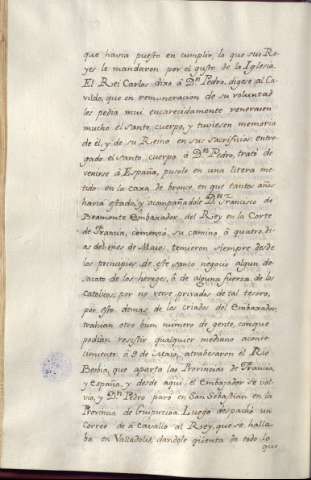 que havia puesto en cumplir lo que sus Re-
yes le mandaron por el gusto de la Iglesia.
El Rei Carlos dixo â Dⁿ Pedro, digese al Ca-
vildo, que en remuneracion de su voluntad
les pedia mui encarecidamente venerasen
mucho el santo cuerpo, y tuviesen memoria
de él, y de su Reino en sus sacrificios: entre-
gado el santo cuerpo â Dⁿ Pedro, trató de
venirse â España, pusole en una litera me-
tido en la caxa de bronce, en que tantos años
havia estado, y acompañadole Dⁿ Francisco de
Beamonte Embaxador del Rey en la Corte
de Francia, comenzó su camino â quatro di-
as del mes de Mayo: temieron siempre desde
los principios de este santo negocio algun de-
sacato de los hereges, ô de alguna fuerza de los
Catolicos, por no verse privados de tal tesoro,
por esto demas de los criados del Embaxador,
trahian otro buen numero de gente, conque
podian resistir qualquier mediano aconte-
cimiento: â 9 de Mayo, atrabesaron el Rio
Beobia, que aparta las Provincias de Francia,
y España, y desde aqui el Embaxador se vol-
vio, y Dⁿ Pedro paró en San Sebastian en la
Provincia de Guipuzcoa. Luego despachó un
Correo de â Cavallo al Rey, que se halla-
ba en Valladolid, dandole qüenta de todo lo
que